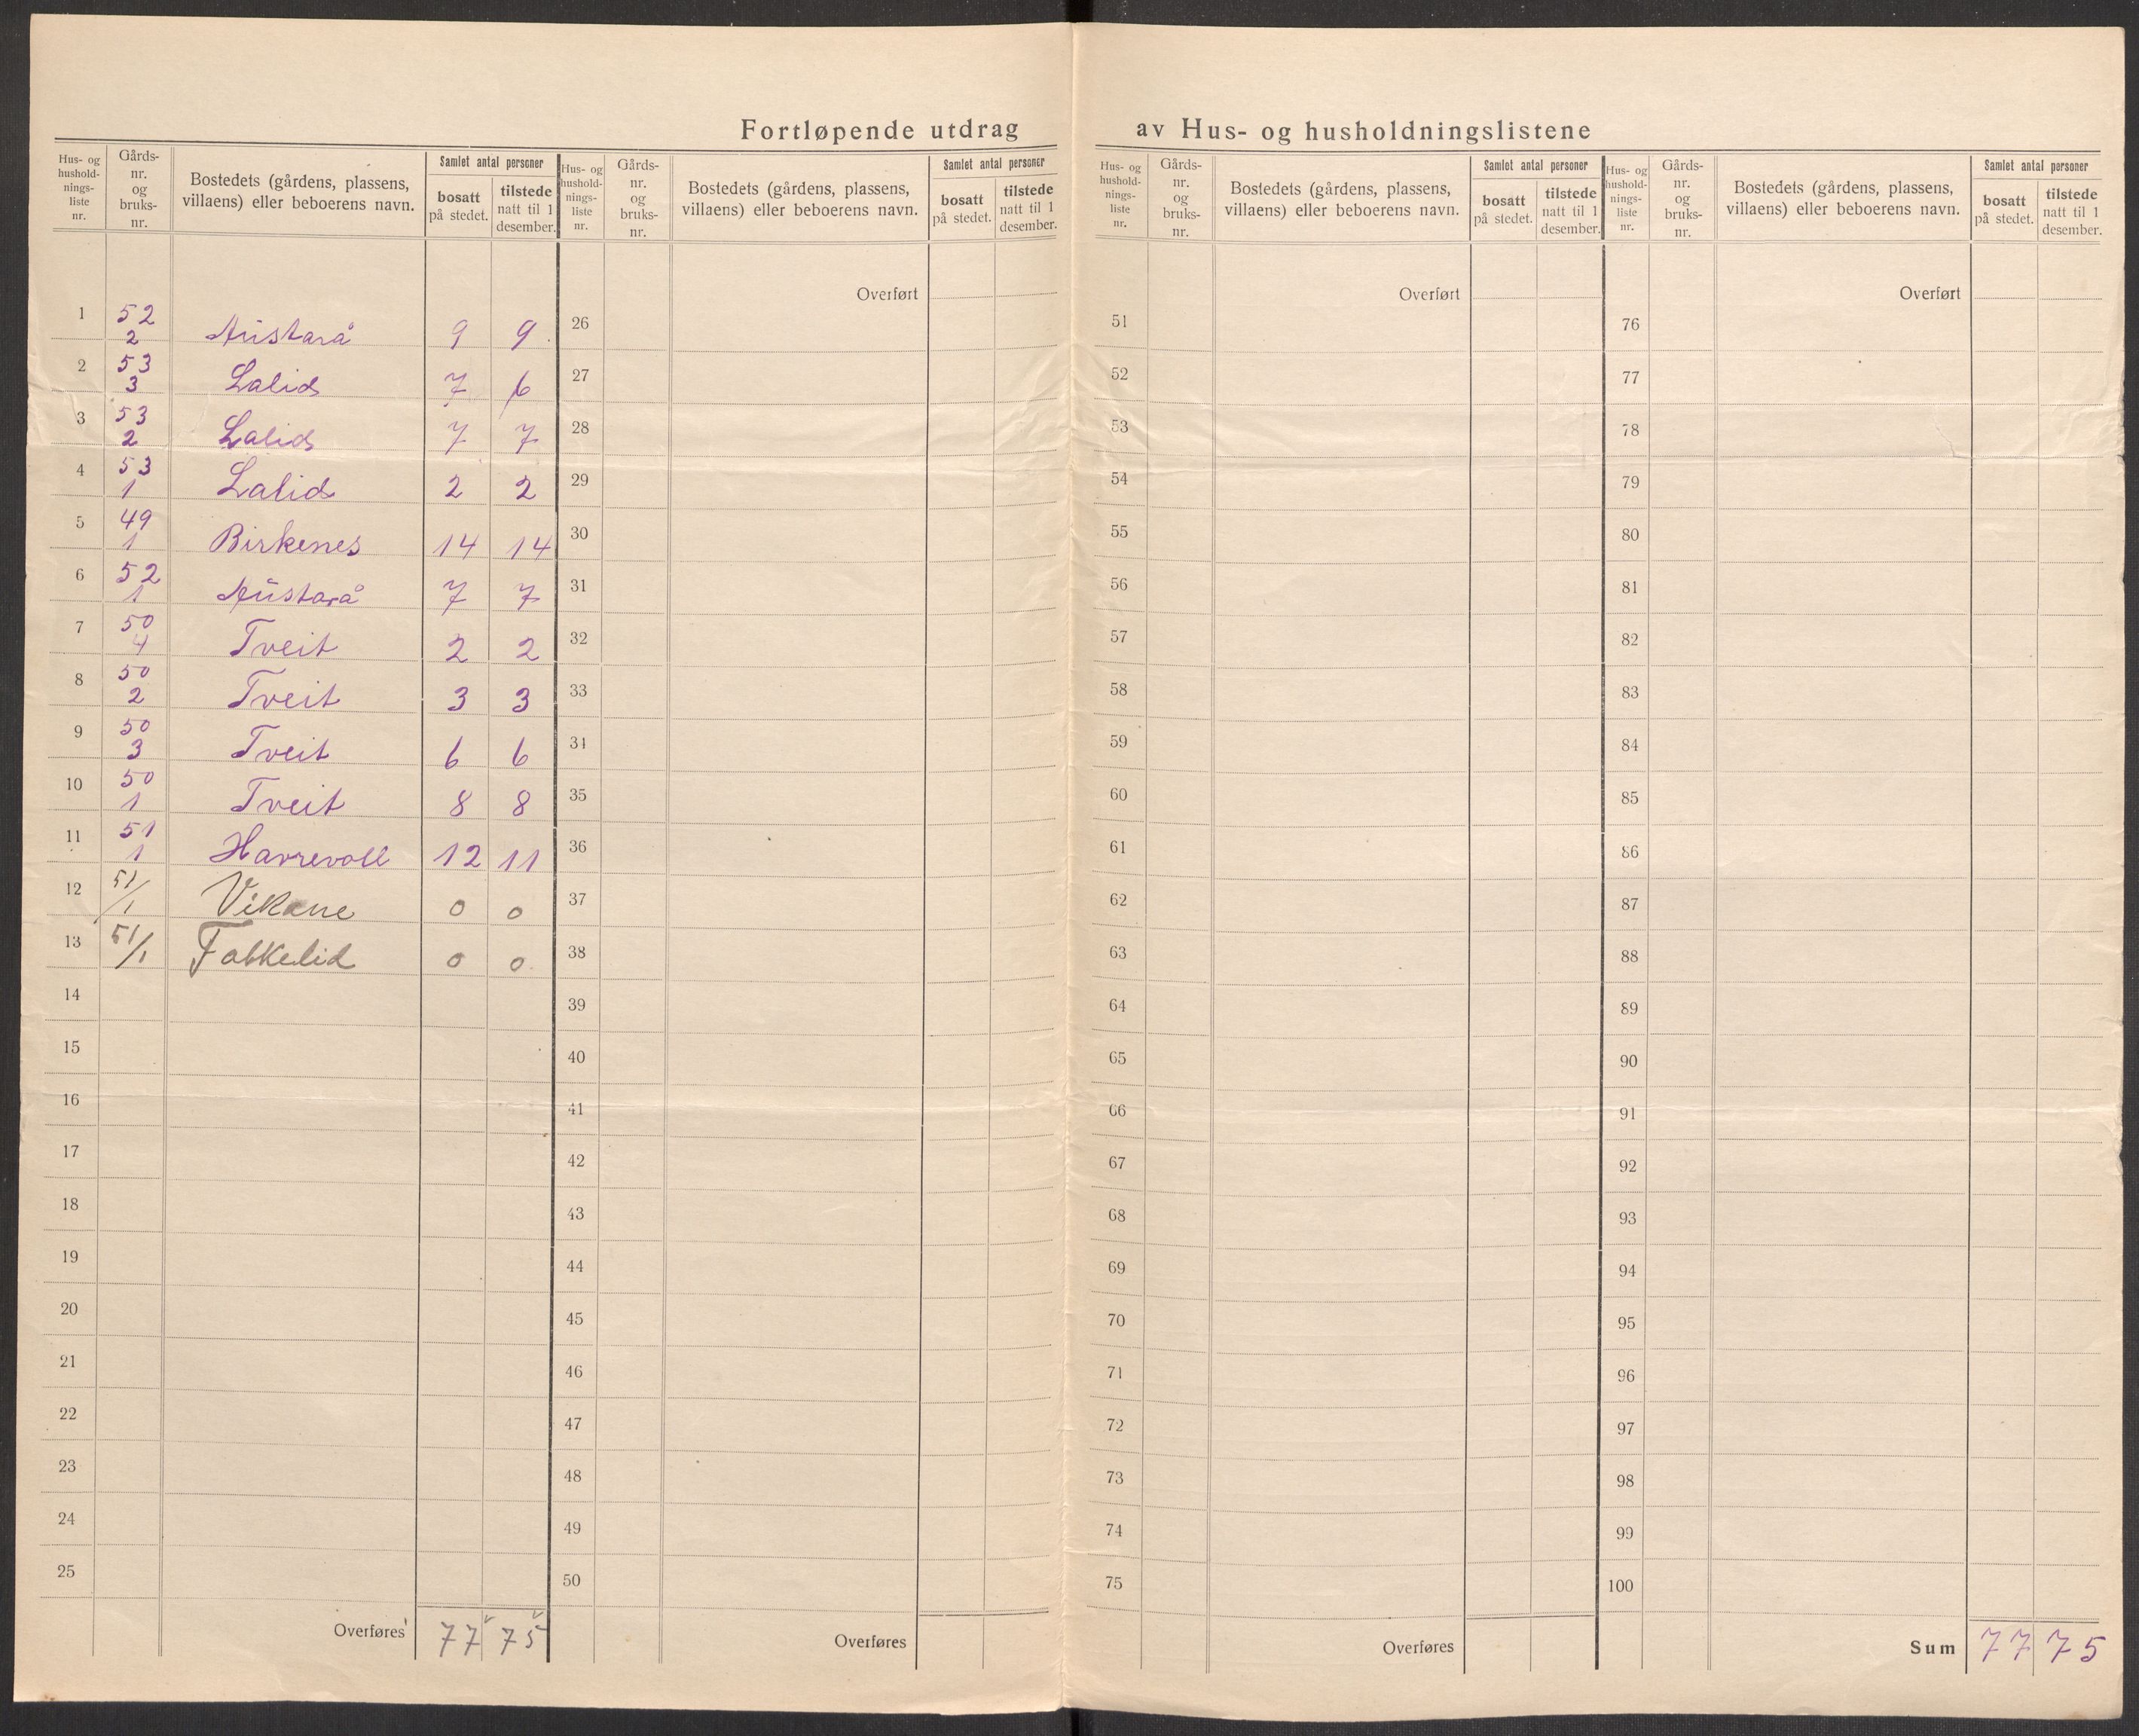 Fortløpende utdrag av Hus- og husholdningslistene
Hus- og husholdnings-liste nr. | Gårds-nr. og bruks-nr. | Bostedets (gårdens, plassens, villaens) eller beboerens navn. | Samlet antal personer | bosatt på stedet. | tilstede natt til 1 desember.
1 | 52 2 | Austarå | 9 | 9
2 | 53 3 | Lalid | 7 | 6
3 | 53 2 | Lalid | 7 | 7
4 | 53 1 | Lalid | 2 | 2
5 | 49 1 | Birkenes | 14 | 14
6 | 52 1 | Austarå | 7 | 7
7 | 50 4 | Tveit | 2 | 2
8 | 50 2 | Tveit | 3 | 3
9 | 50 3 | Tveit | 6 | 6
10 | 50 1 | Tveit | 8 | 8
11 | 51 1 | Havrevoll | 12 | 11
12 | 51/1 | Vikane | 0 | 0
13 | 51/1 | 0 | 0
14
15
16
17
18
19
20
21
22
23
24
25
Overføres 77 75
Hus- og husholdnings-liste nr. | Gårds-nr. og bruks-nr. | Bostedets (gårdens, plassens, villaens) eller beboerens navn. | Samlet antal personer | bosatt på stedet. | tilstede natt til 1 desember.
Overført
26
27
28
29
30
31
32
33
34
35
36
37
38
39
40
41
42
43
44
45
46
47
48
49
50
Overføres
Hus- og husholdnings-liste nr. | Gårds-nr. og bruks-nr. | Bostedets (gårdens, plassens, villaens) eller beboerens navn. | Samlet antal personer | bosatt på stedet. | tilstede natt til 1 desember.
Overført
51
52
53
54
55
56
57
58
59
60
61
62
63
64
65
66
67
68
69
70
71
72
73
74
75
Overføres
Hus- og husholdnings-liste nr. | Gårds-nr. og bruks-nr. | Bostedets (gårdens, plassens, villaens) eller beboerens navn. | Samlet antal personer | bosatt på stedet. | tilstede natt til 1 desember.
Overført
76
77
78
79
80
81
82
83
84
85
86
87
88
89
90
91
92
93
94
95
96
97
98
99
100
Sum 77 75